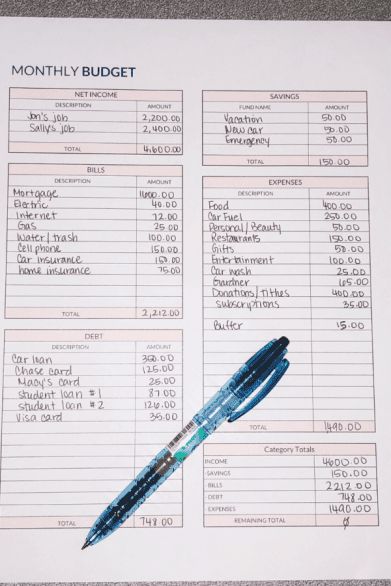 MONTHLY BUDGET
NET INCOME
DESCRIPTION AMOUNT
Jon's job 2,200.00
Sally's job 2,400.00
TOTAL 4,600.00
BILLS
DESCRIPTION AMOUNT
Mortgage 1600.00
Electric 40.00
Internet 72.00
Gas 25.00
Water/trash 100.00
Cell phone 150.00
Car insurance 150.00
home insurance 75.00
TOTAL 2,212.00
DEBT
DESCRIPTION AMOUNT
Car loan 350.00
Chase card 125.00
Macy's card 25.00
student loan #1 87.00
student loan #2 126.00
Visa card 35.00
TOTAL 748.00
SAVINGS
FUND NAME AMOUNT
Vacation 50.00
New car 50.00
Emergency 50.00
TOTAL 150.00
EXPENSES
DESCRIPTION AMOUNT
Food 400.00
Car Fuel 250.00
Personal/Beauty 50.00
Restaurants 150.00
Gifts 50.00
Entertainment 100.00
Car wash 25.00
Gardner 65.00
Donations/Tithes 400.00
Subscryptions 35.00
Buffer 15.00
TOTAL 1490.00
Category Totals
INCOME 4600.00
-SAVINGS 150.00
-BILLS 2212.00
-DEBT 748.00
-EXPENSES 1490.00
REMAINING TOTAL Ø